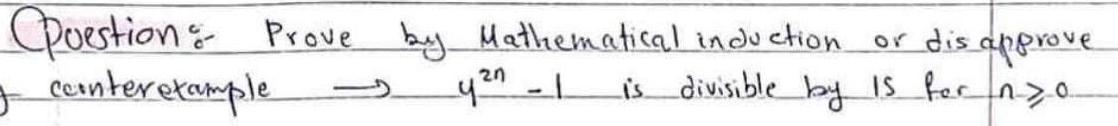 Question:- Prove by Mathematical induction or disapprove
counterexample → 4²ⁿ - 1 is divisible by 15 for n ≥ 0